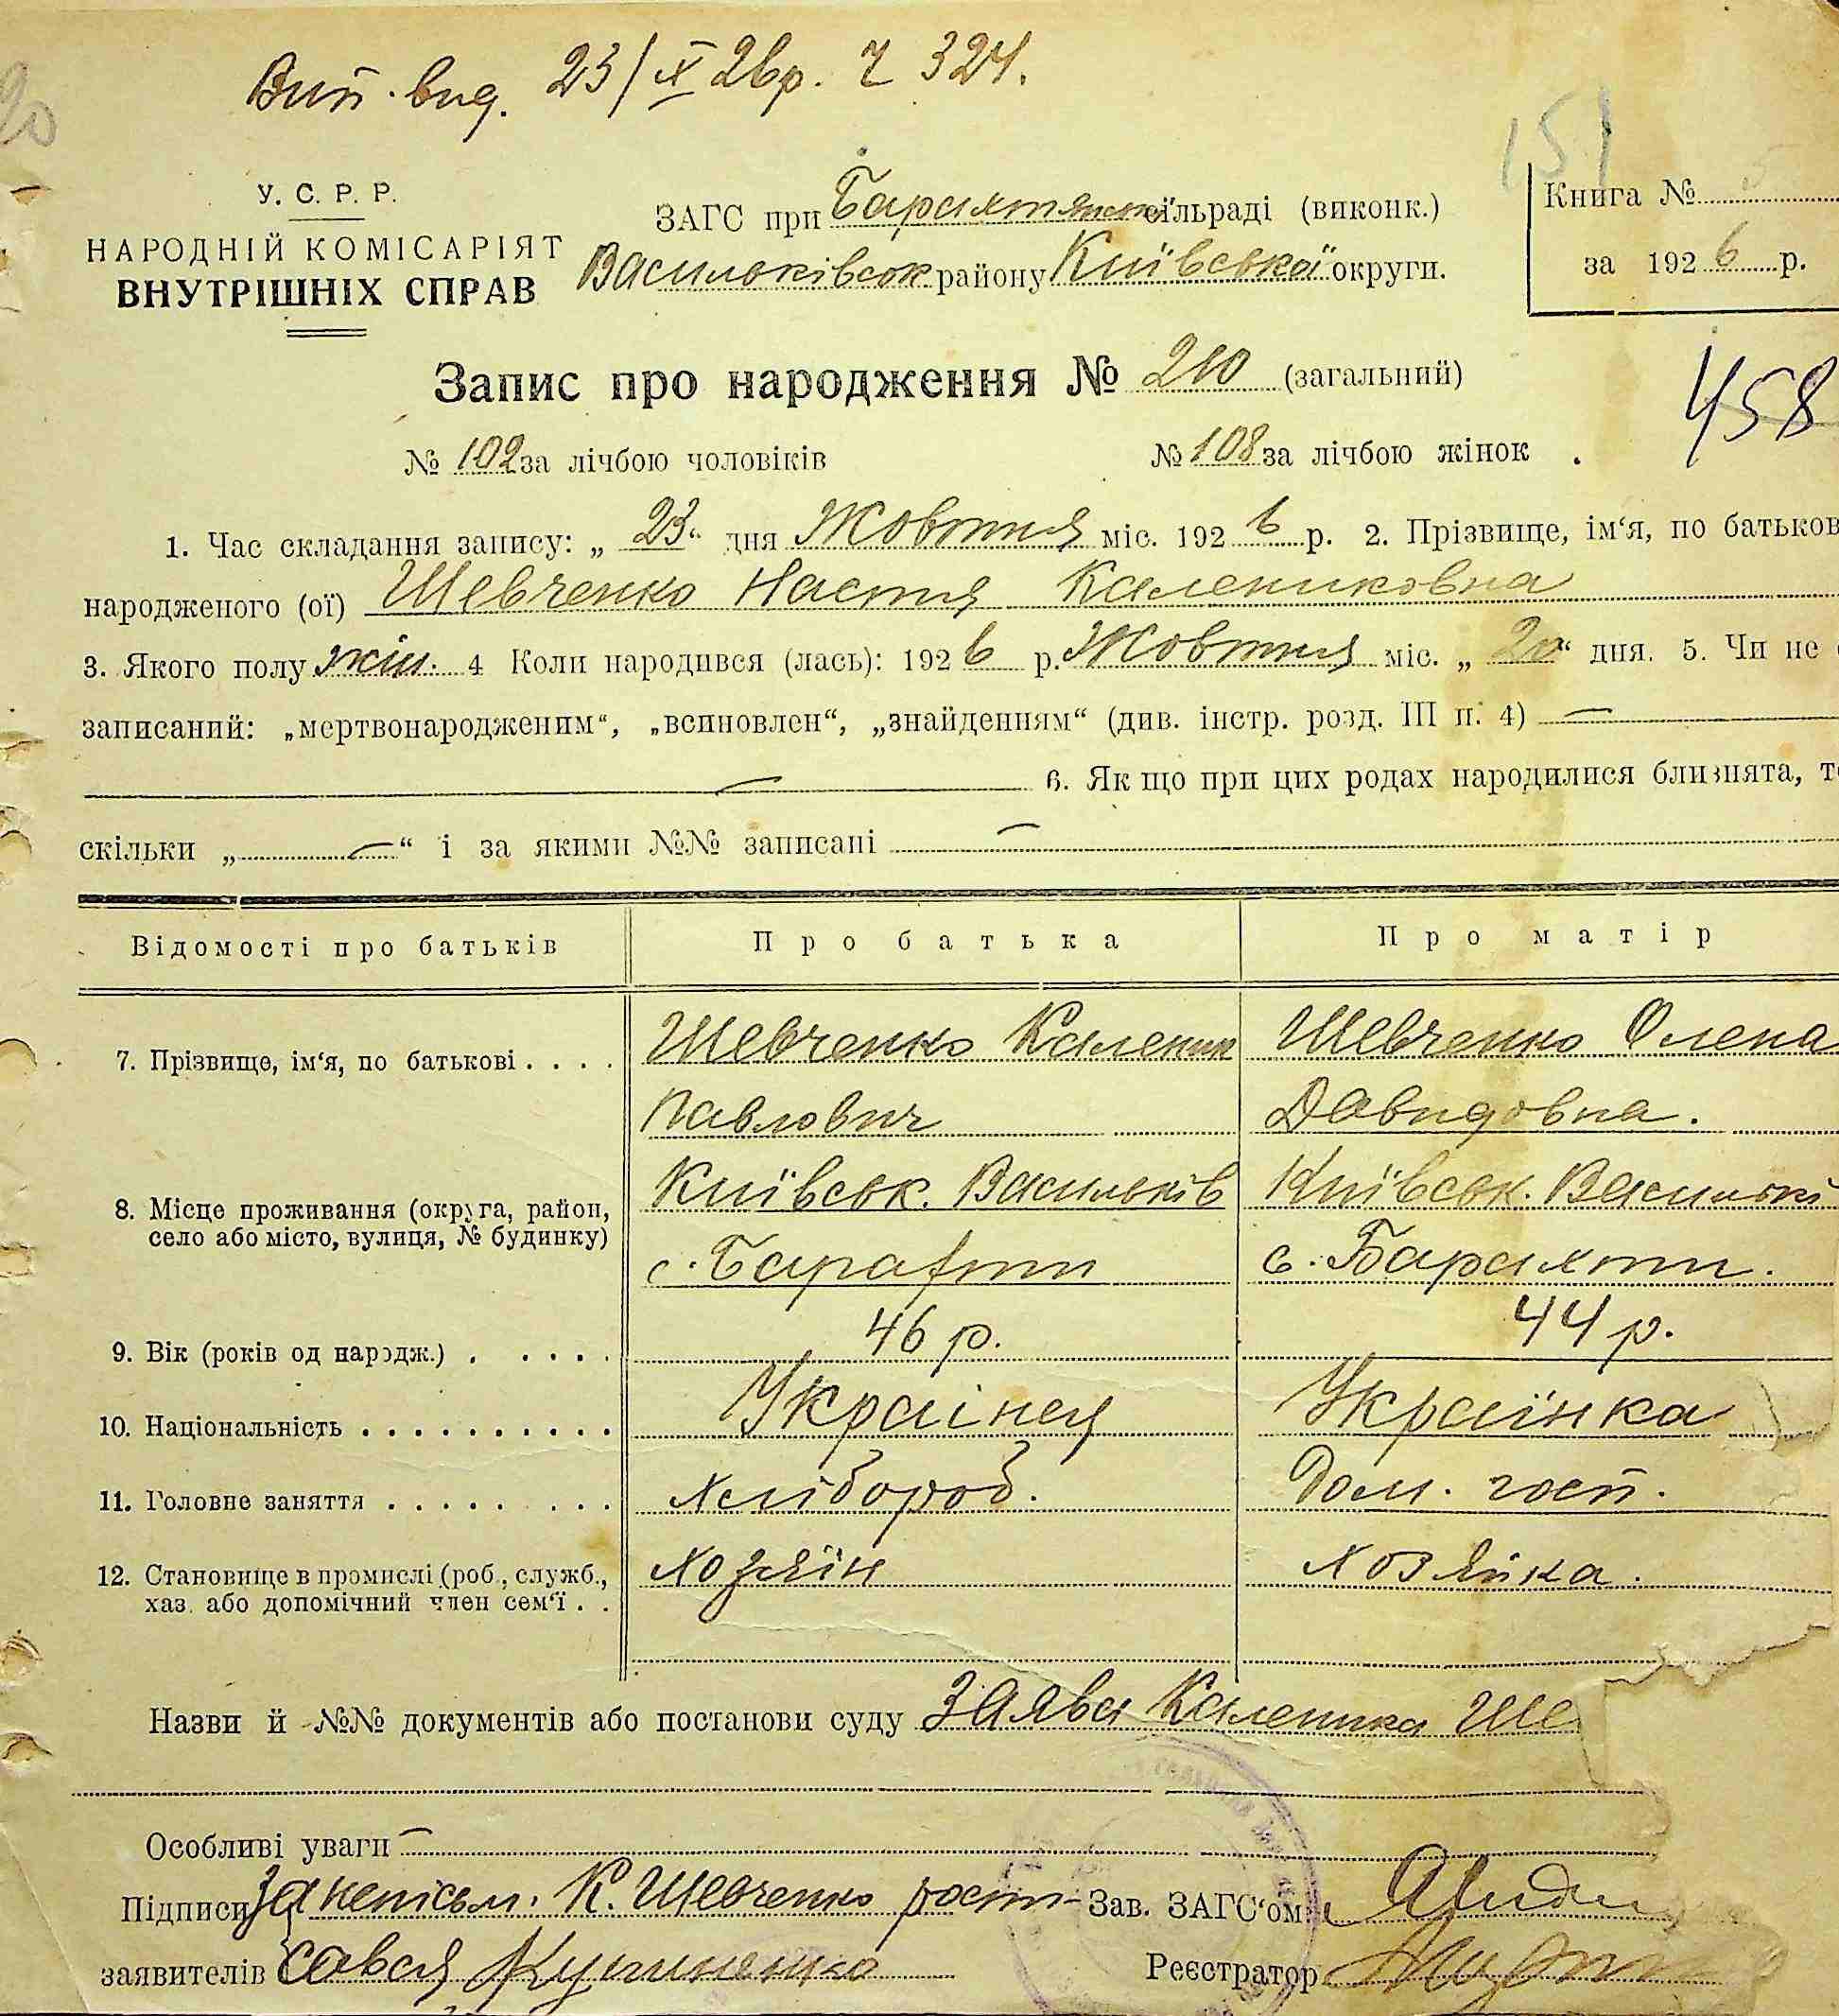 Вип. вид. 23/X 26р. Ч 324.
151
У. С. Р. Р.
НАРОДНІЙ КОМІСАРІЯТ
ВНУТРІШНІХ СПРАВ
ЗАГС при Барахтянськ сільраді (виконк.)
Васильківськ району Київської округи.
Книга №
за 1926 р.
Запис про народження № 210 (загальний)
458
№ 102 за лічбою чоловіків № 108 за лічбою жінок .
1. Час складання запису: „ 23 “ дня Жовтня міс. 1926 р. 2. Прізвище, ім‘я, по батьков
народженого (ої) Шевченко Настя Калениковна
3. Якого полу жін. 4 Коли народився (лась): 1926 р. Жовтня міс. „ 20 “ дня. 5. Чи не
записаний: „мертвонародженим“, „всиновлен“, „знайденням“ (див. інстр. розд. III п. 4) —
— 6. Як що при цих родах народилися близнята, т
скільки „ — “ і за якими №№ записані —
Відомості про батьків Про батька Про матір
7. Прізвище, ім‘я, по батькові . . . . Шевченко Каленик Шевченко Олена
Павлович Давидовна.
8. Місце проживання (округа, район, Київськ. Васильків Київськ. Василькі
село або місто, вулиця, № будинку)
с. Барахти с. Барахти.
9. Вік (років од народж.) . . . . . 46 р. 44 р.
10. Національність . . . . . . . . . . Украінец Украінка
11. Головне заняття . . . . . . . . . Хлібороб. Дом. госп.
12. Становище в промислі (роб., служб., Хозяїн Хозяйка.
хаз. або допомічний член сем‘ї . .
Назви й №№ документів або постанови суду Заява Каленика Ше
Особливі уваги —
Підписи За неписьм. К. Шевченко рост- Зав. ЗАГС‘ом
заявителів Сався Реєстратор